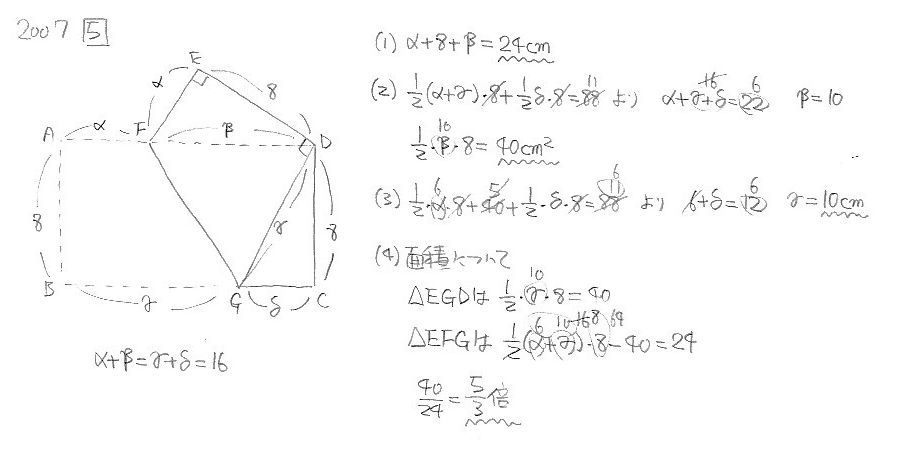 2007 5
E
α
8
A
α
F
β
D
8
γ
8
B
γ
G
δ
C
α+β=γ+δ=16
(1) α+8+β=24cm
(2) 1/2(α+γ)・8+1/2δ・8=88 より α+γ+δ=22 β=10
11
16
6
1/2・β・8=40cm²
10
(3) 1/2・α・8+40+1/2・δ・8=88 より 6+δ=12 γ=10cm
6
5
11
6
6
(4) 面積について
△EGDは 1/2・γ・8=40
10
△EFGは 1/2(α+γ)・8-40=24
6 10 16 8 64
40/24=5/3倍